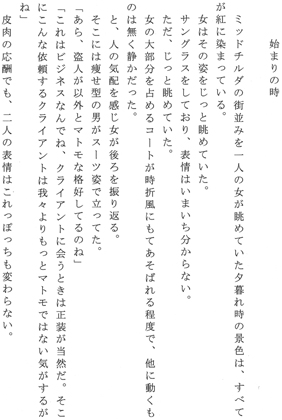 始まりの時
ミッドチルダの街並みを一人の女が眺めていた夕暮れ時の景色は、すべて
が紅に染まっている。
女はその姿をじっと眺めていた。
サングラスをしており、表情はいまいち分からない。
ただ、じっと眺めていた。
女の大部分を占めるコートが時折風にもてあそばれる程度で、他に動くも
のは無く静かだった。
と、人の気配を感じ女が後ろを振り返る。
そこには痩せ型の男がスーツ姿で立ってた。
「あら、盗人が以外とマトモな格好してるのね」
「これはビジネスなんでね、クライアントに会うときは正装が当然だ。そこ
にこんな依頼するクライアントは我々よりもっとマトモではない気がするが
ね」
皮肉の応酬でも、二人の表情はこれっぽっちも変わらない。